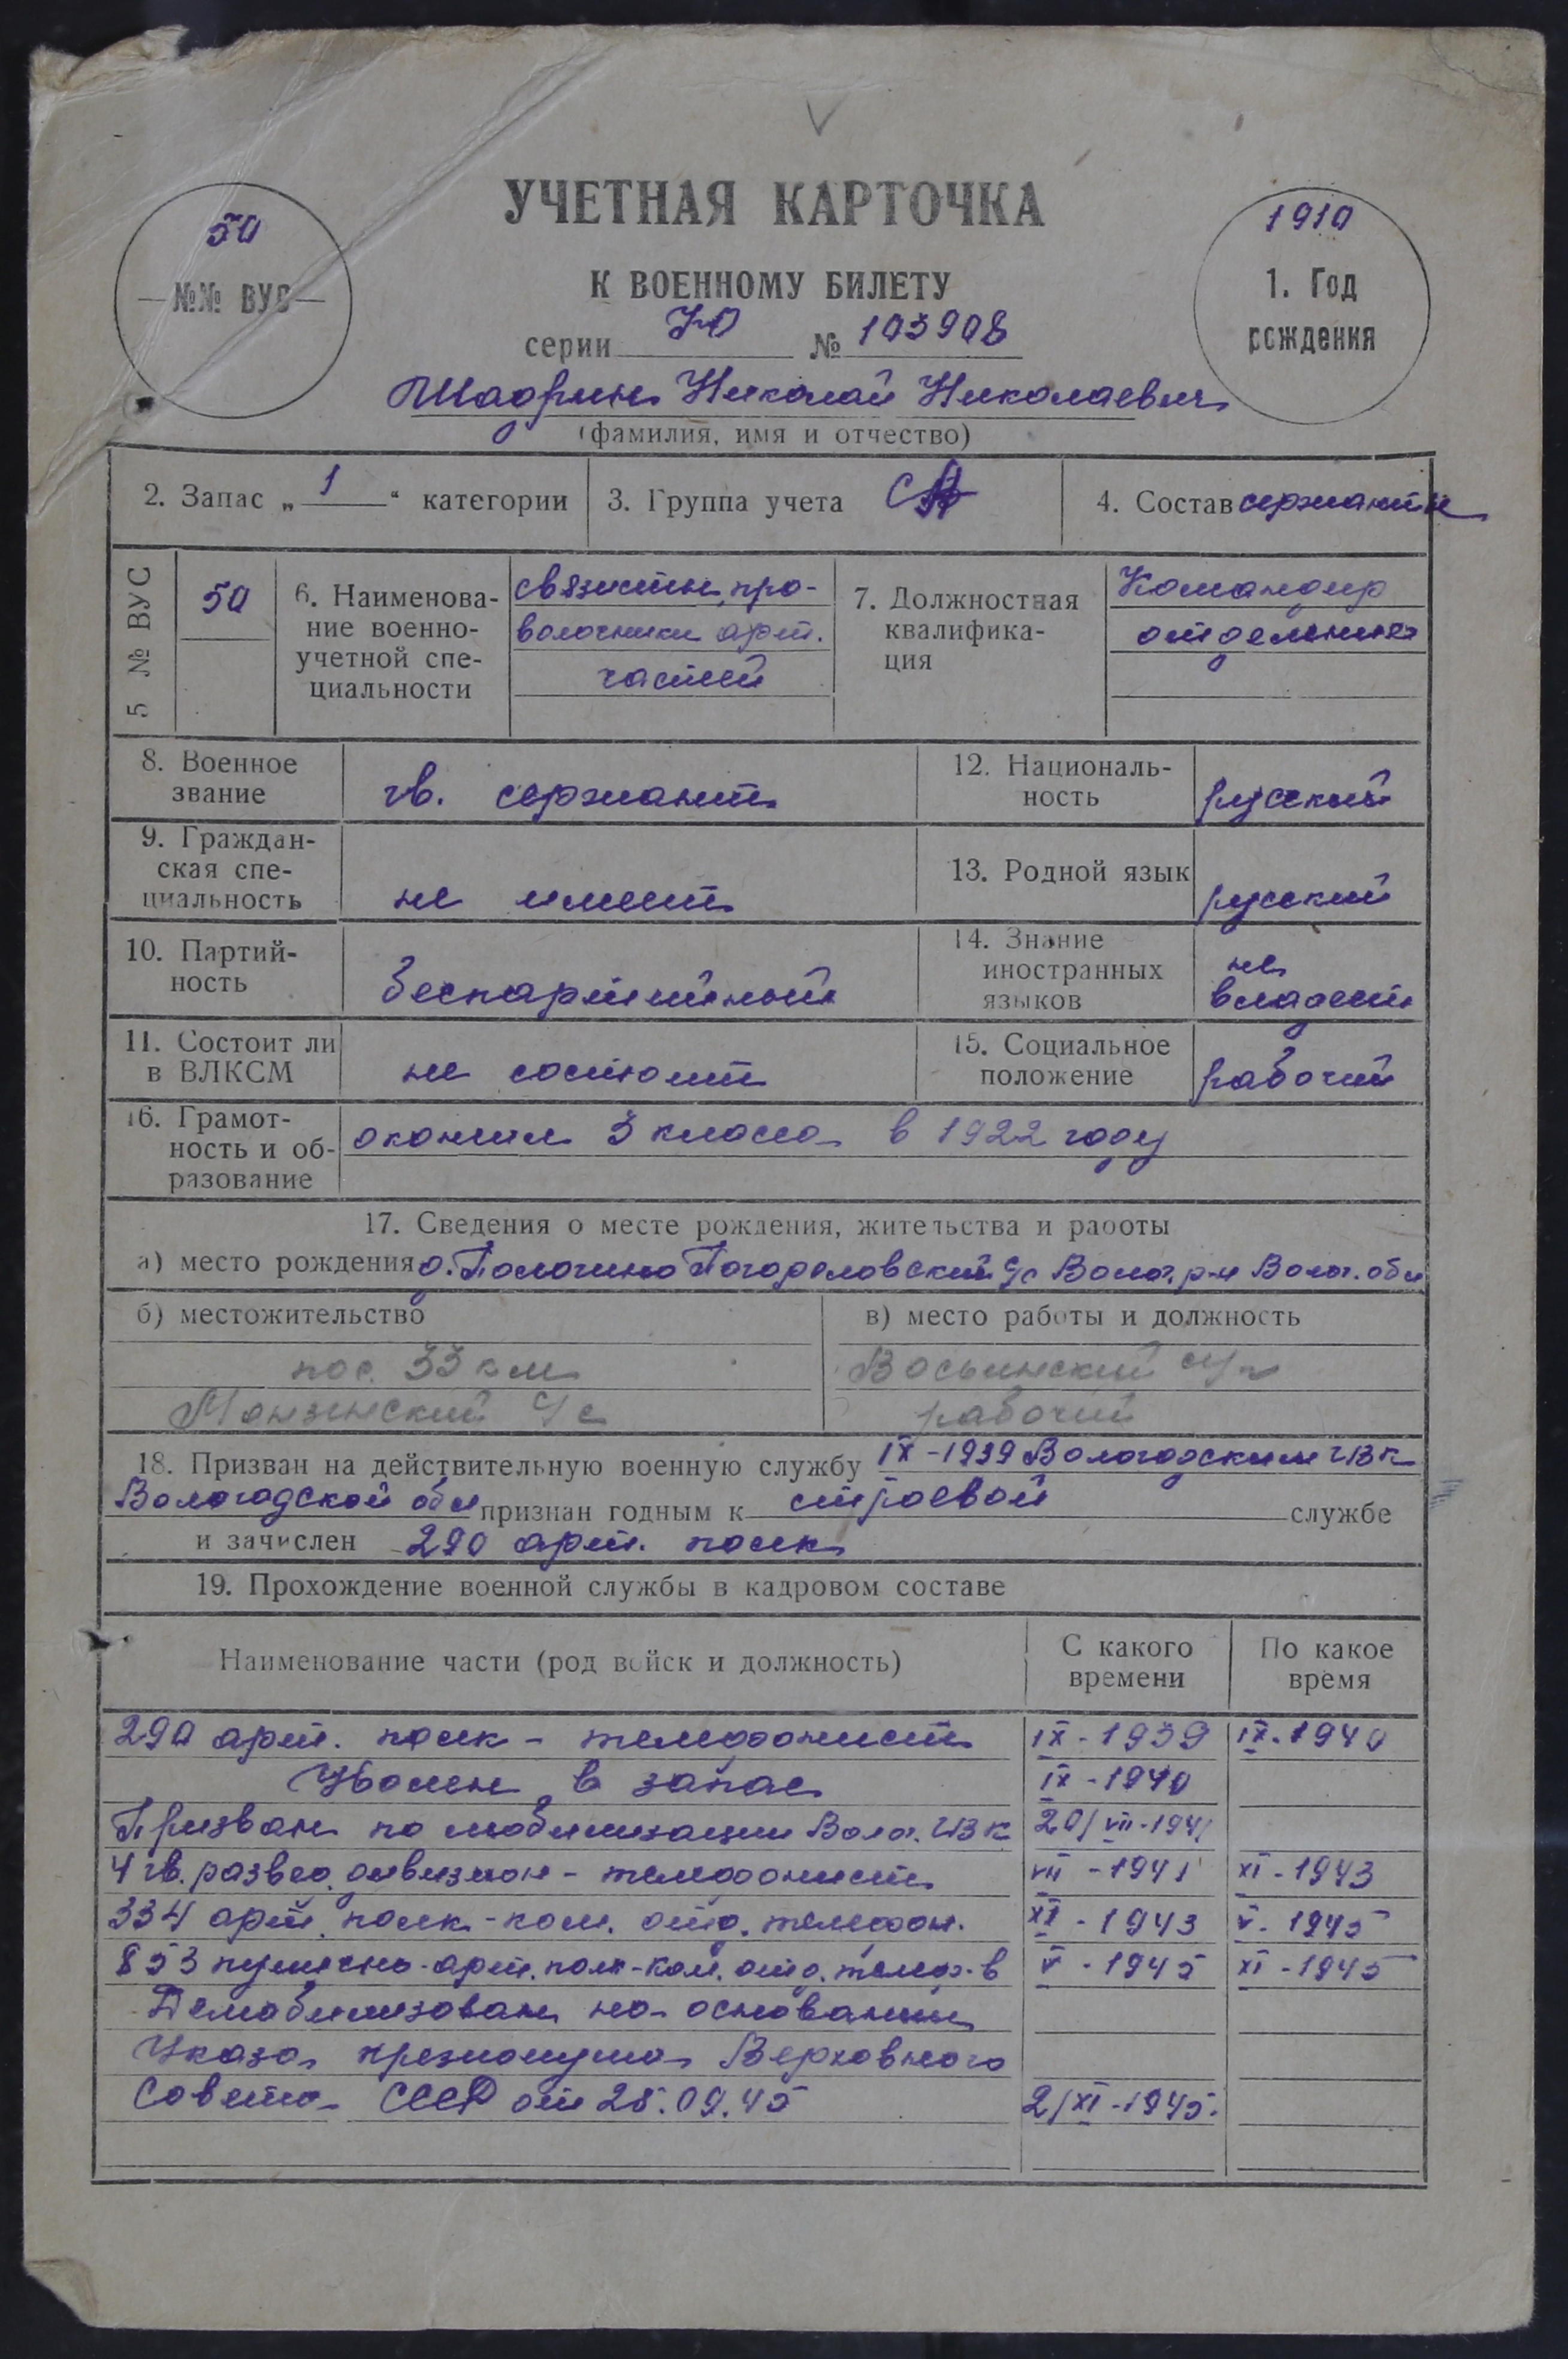 УЧЕТНАЯ КАРТОЧКА
К ВОЕННОМУ БИЛЕТУ
серии № 103908
50
№№ ВУС
1910
1. Год
рождения
Шадрин Николай Николаевич
(фамилия, имя и отчество)
2. Запас „1“ категории
3. Группа учета СА
4. Состав сержанты
5 № ВУС
50
6. Наименова-
ние военно-
учетной спе-
циальности
связисты про-
волочники арт.
частей
7. Должностная
квалифика-
ция
Командир
отделения
8. Военное
звание
гв. сержант
12. Националь-
ность
русский
9. Граждан-
ская спе-
циальность
не имеет
13. Родной язык
русский
10. Партий-
ность
беспартийный
14. Знание
иностранных
языков
не
владеет
11. Состоит ли
в ВЛКСМ
не состоит
15. Социальное
положение
рабочий
16. Грамот-
ность и об-
разование
окончил 3 класса в 1922 году
17. Сведения о месте рождения, жительства и работы
а) место рождения д. Погореловский с/с Волог. р-н Волог. обл
б) местожительство
пос. 33 км
Монзенский с/с
в) место работы и должность
рабочий
18. Призван на действительную военную службу IX-1939 Вологодским ГВК
Вологодской обл признан годным к строевой службе
и зачислен 290 арт. полк
19. Прохождение военной службы в кадровом составе
Наименование части (род войск и должность)
С какого
времени
По какое
время
290 арт. полк - телефонист IX-1939 IX-1940
Уволен в запас IX-1940
Призван по мобилизации Волог. ГВК 20/VII-1941
4 гв. развед. дивизион - телефонист VII-1941 XI-1943
334 арт. полк - ком. отд. телефон. XI-1943 V-1945
853 пушечно-арт. полк-ком. отд. телеф-в V-1945 XI-1945
Демобилизован на основании
Указа президиума Верховного
Совета СССР от 25.09.45 2/XI-1945.